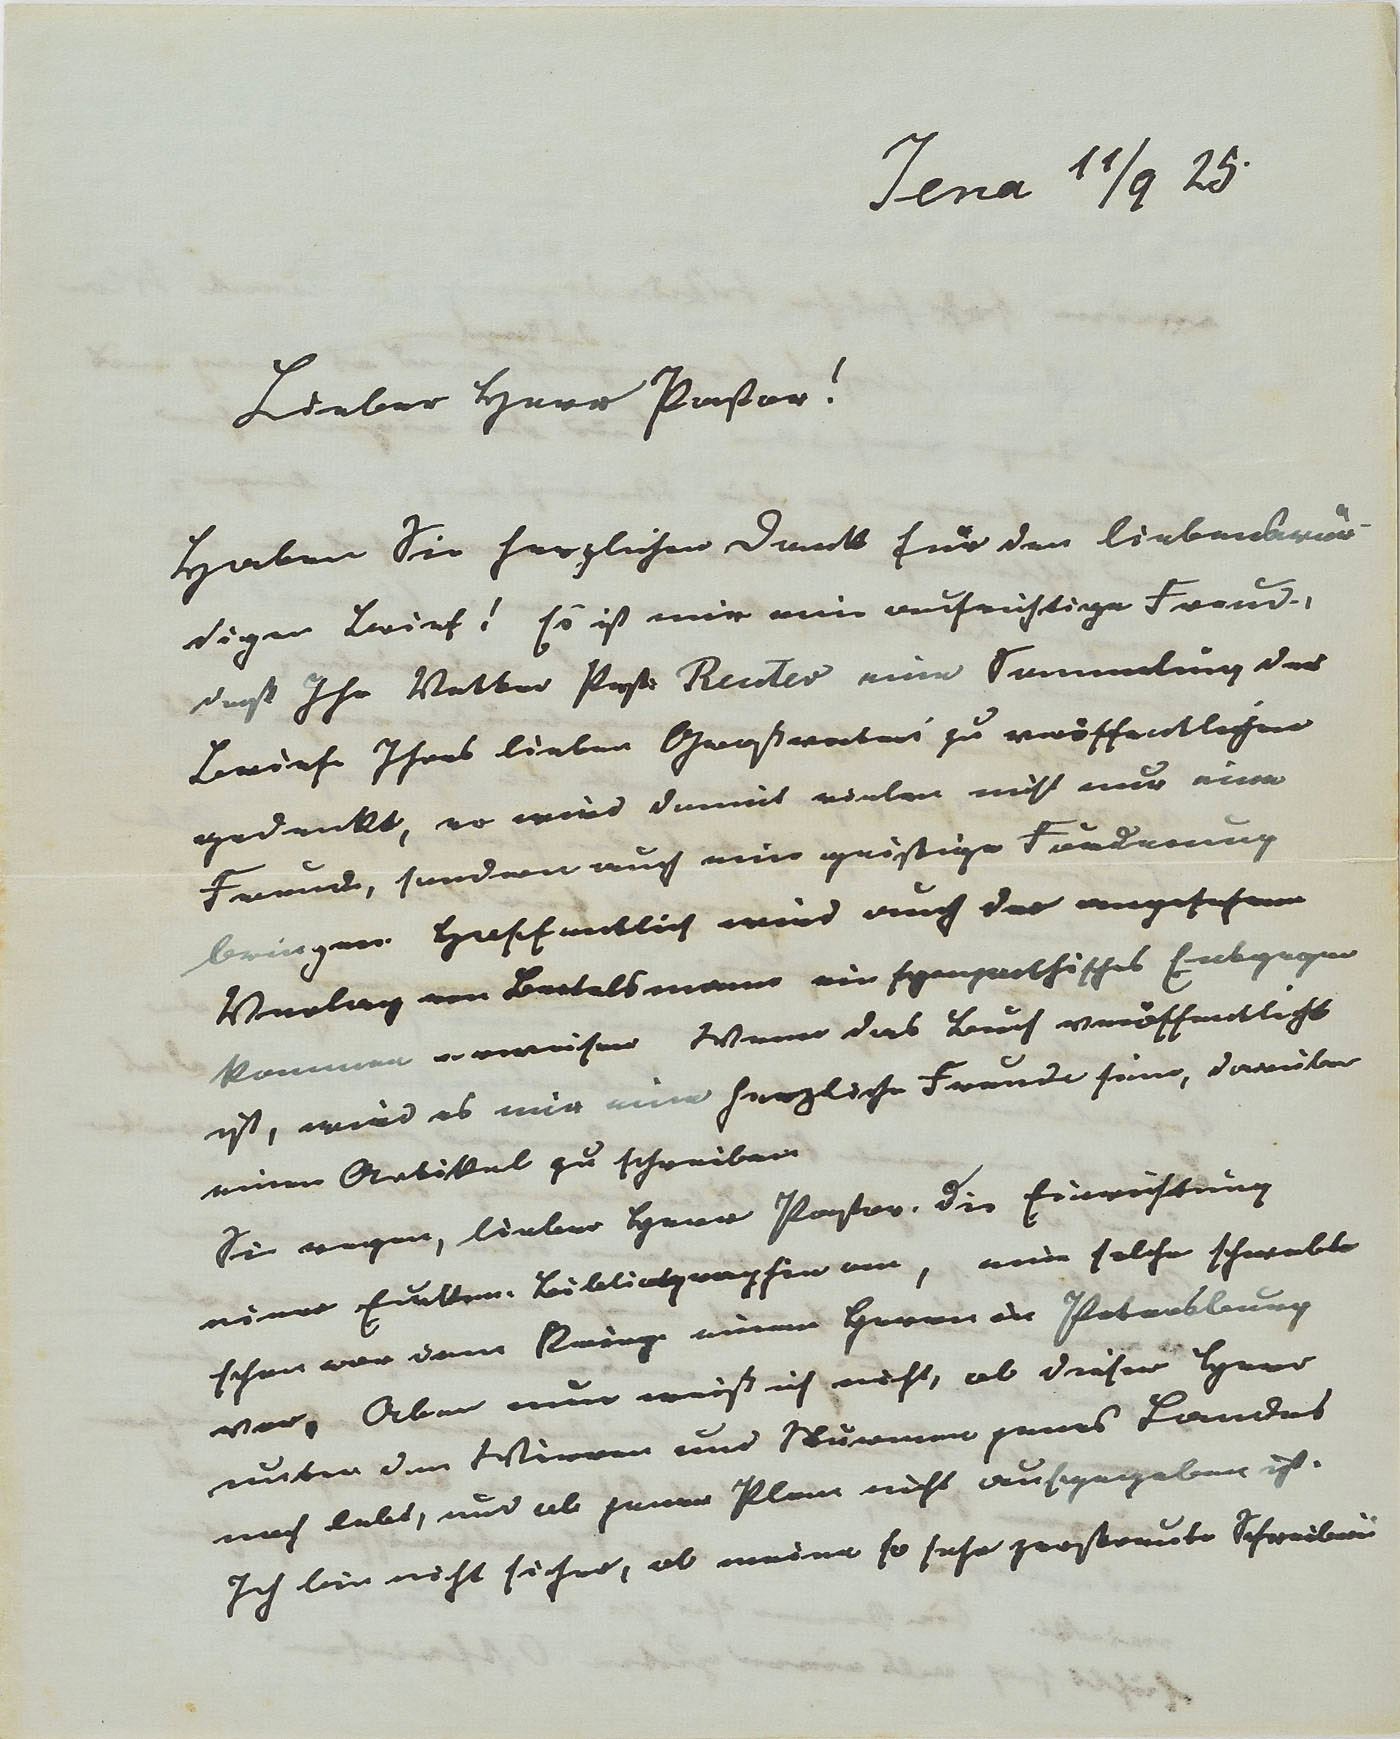 Jena 11/9 25.
Lieber Herr Pastor!
Haben Sie herzlichen Dank für den liebenswür-
digen Brief! Es ist mir eine aufrichtige Freude,
daß Ihr Vetter Past. Reuter eine Sammlung der
Briefe Ihres lieben Großvaters zu veröffentlichen
gedenkt, er wird damit vielen nicht nur eine
Freude, sondern auch eine geistige Förderung
bringen. Hoffentlich wird auch der angesehene
Verlag von Bertelsmann ein sympathisches Entgegen
kommen erweisen Wenn das Buch veröffentlicht
ist, wird es mir eine herzliche Freude sein, darüber
einen Artikel zu schreiben
Sie regen, lieber Herr Pastor. die Einrichtung
einer Eucken-Bibliographie an, eine solche schwebte
schon vor dem Kriege einem Herrn in Petersburg
vor, Aber nun weiß ich nicht, ob dieser Herr
unter den Wirren und Stürmen jenes Landes
noch lebt, und ob jener Plan nicht aufgegeben ist.
Ich bin nicht sicher, ob meine so sehr zerstreute